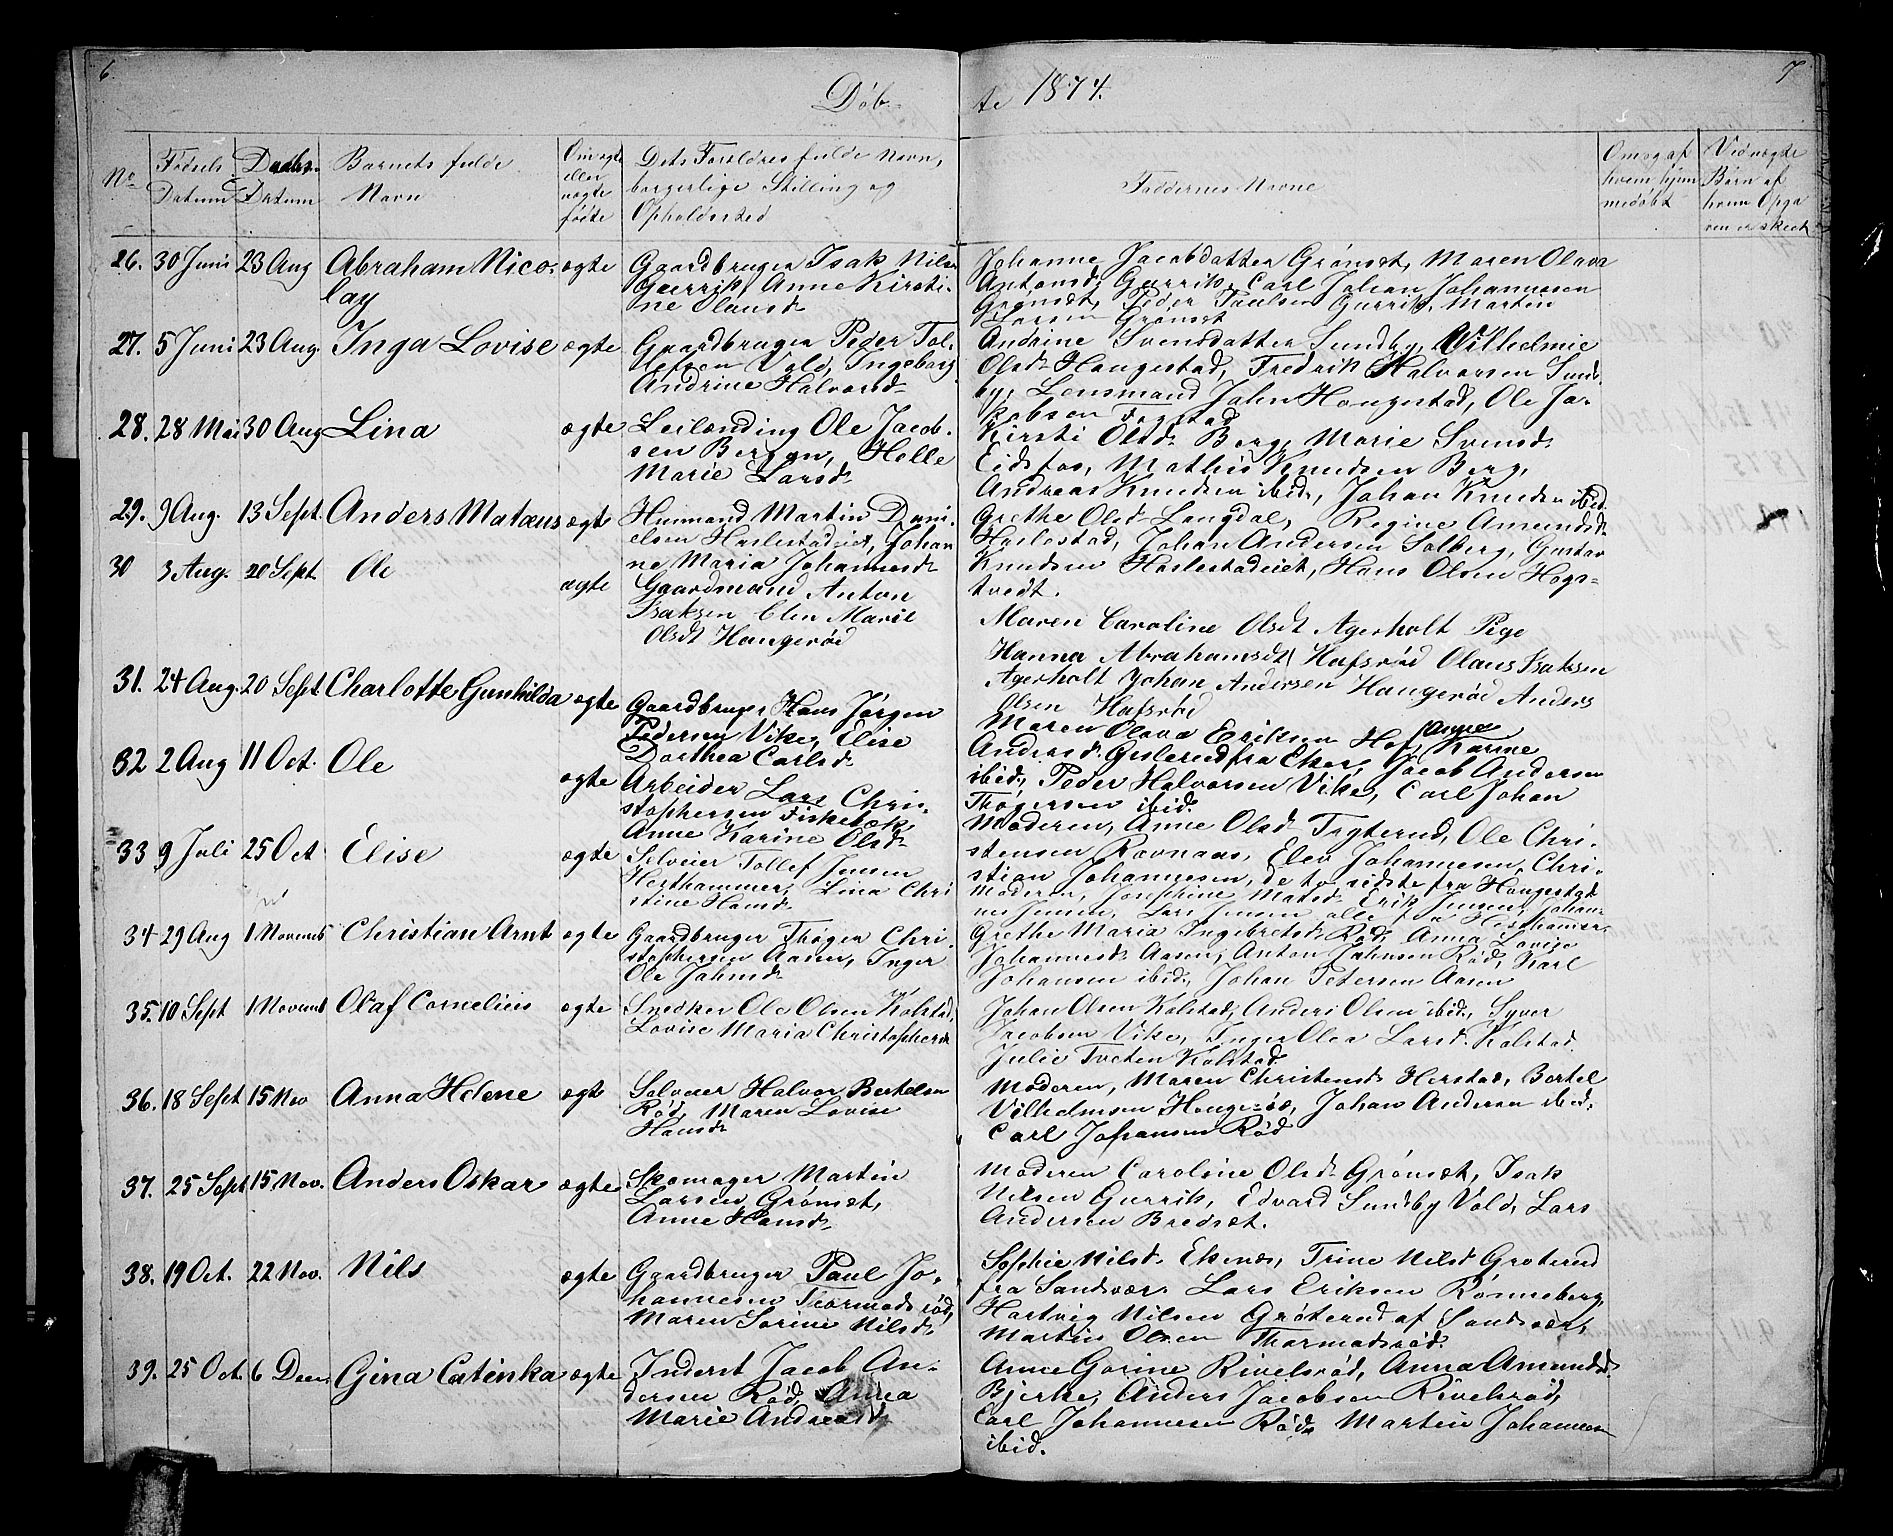 6
7
Døb-
te 1874.
No
Fødsels
Datum
Daabs-
Datum
Barnets fulde
Navn
Om ægte
eller
uægte
fødte
Dets Forældres fulde Navn,
borgerlige Stilling og
Opholdssted
Faddernes Navne
Om og af
hvem hjem
medøbt
Ved uægte
Børn af
hvem Opga
ven er skeet
26. 30 Juni 23 Aug Abraham Nico- ægte
lay
Gaardbruger Isak Nils
Gurrik, Anne Kirsti-
ne Olausd.
Johanne Jacobdatter Grønset, Maren Olava
Antonsd. Gurrik, Carl Johan Johannesen
Grønset, Peder Paulsen Gurrik, Martin
Larsen Grønset
27. 5 Juni 23 Aug. Inga Lovise ægte
Gaardbruger Peder Tol-
lefsen Vold, Ingeborg
Andrine Halvorsd.
Andrine Svensdatter Sundby, Vilhelmie
Olsd. Haugestad, Fredrik Halvorsen Sund-
by, Lensmand John Haugestad, Ole Ja-
kobsen
28. 28 Mai 30 Aug Lina ægte
Leilænding Ole Jacob-
sen Bergan, Helle
Marie Larsd.
Kirsti Olsd. Berg, Marie Svensd.
Eidsfos, Mathis Knudsen Berg,
Andreas Knudsen ibid., Johan Knudsen ibid.
29. 9 Aug. 13 Sept. Anders Matæus ægte
Husmand Martin Dani-
elsen Haslestadeiet, Johan
ne Maria Johannesd.
Grethe Olsd. Langdal, Regine Amundsd.
Haslestad, Johan Andersen Solberg, Gustav
Knudsen Haslestadeiet, Hans Olsen Hogs-
tvedt.
30 3 Aug. 20 Sept. Ole ægte
Gaardmand Anton
Isaksen Elen Marie
Olsdt Haugerød
Maren Caroline Olsdt Agerholt Pige
Hanna Abrahamsdt Hafsrød Olaus Isaksen
Agerholt Johan Andersen Haugerød Anders
Olsen Hafsrød
31. 24 Aug. 20 Sept. Charlotte Gunhilda ægte
Gaardbruger Hans Jørgen
Pedersen Vike, Elise
Dorthea Carlsd.
Maren Olava Eriksen Hof, Anne Karine
Andersd. Gislerud fra Eker, Jacob Andersen
ibid., Peder Halvorsen Vike, Carl Johan
Thøgersen ibid.
32 2 Aug 11 Oct. Ole ægte
Arbeider Lars Chri-
stophersen Fiskebæk,
Anne Karine Olsd.
Moderen, Anne Olsd. Tryterud, Ole Chri-
stensen Ravnaas, Elev Johannesen, Chri-
stian Johannesen, de to sidste fra Haugestad
33 9 Juli 25 Oct Elise ægte
Selveier Tollef Jensen
Hesthammer, Lina Chri
stine Hansd.
Moderen, Josephine Matsd. Erik Jensen, Johan-
nes Jensen, Lars Jensen alle fra Hesthamer.
34 29 Aug 1 Novemb Christian Arnt ægte
Gaardbruger Thøger Chri-
stophersen Aasen, Inger
Ole Johnsd.
Grethe Maria Ingebretsd. Rød, Anna Lovise
Johannesd. Aasen, Anton Johnsen Rød, Karl
Johansen ibid., Johan Petersen Aasen
35. 10 Sept 1 Novemb Olaf Cornelius ægte
Snedker Ole Olsen Kolstad,
Lovise Maria Christophersd.
Johan Olsen Kolstad, Anders Olsen ibid., Syver
Jacobsen Vike, Inger Olea Larsd. Kolstad.
Julie Tveten Kolstad.
36. 18 Sept 15 Nov Anna Helene ægte
Selveier Halvor Bertelsen
Rød, Maren Lovise
Hansd.
Moderen, Maren Christensd. Herstad, Bertel
Vilhelmsen, Johan Andersen ibid.,
Carl Johansen Rød
37. 25 Sept 15 Nov. Anders Oskar ægte
Skomager Martin
Larsen Grønset,
Anne Hansd.
Moderen Caroline Olsd. Grønset, Isak
Nilsen Gurrik, Edvard Sundby Vold, Lars
Andersen Bredset.
38. 19 Oct. 22 Nov. Nils ægte
Gaardbruger Paul Jo-
hannesen Thormodsrød,
Maren Sorine Nilsd.
Sophie Nilsd. Ekenes, Trine Nilsd Groterud
fra Sandsvær. Lars Eriksen Rønneberg,
Hartvig Nilsen Grøterud af Sandsvær,
Martin Olsen Thormodsrød.
39. 25 Oct. 6 Decm. Gina Catinka ægte
Inderst Jacob An-
dersen Rød, Anna
Marie Andreasd.
Anne Gorine Rivelsrød, Anna Amundsd.
Bjerke, Anders Jacobsen Rivelsrød,
Carl Johannesen Rød, Martin Johannesen
ibid.